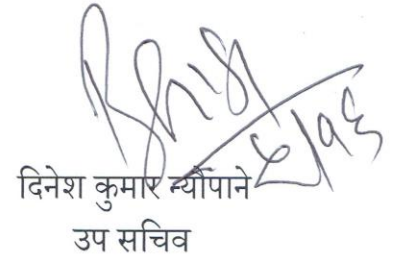 दिनेश कुमार न्यौपाने
उप सचिव